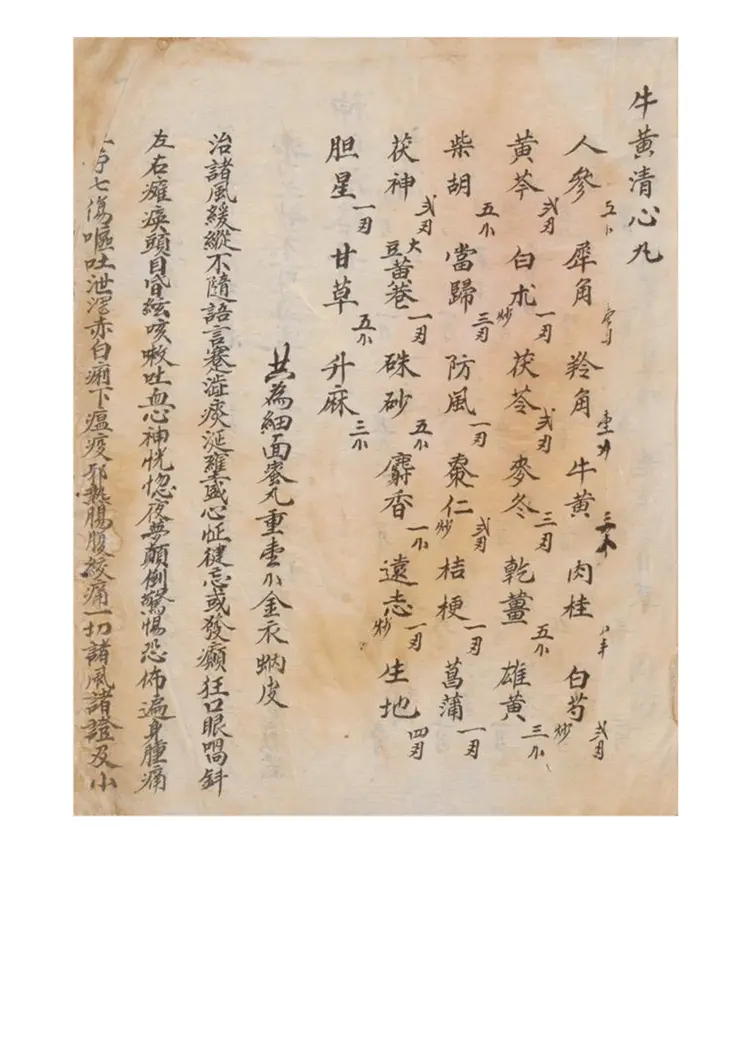 牛黃清心丸
人參 五小 犀角 羚角 壹小 牛黃 三小 肉桂 白芍 炒 弍刃
黃芩 弍刃 白朮 炒 一刃 茯苓 弍刃 麥冬 三刃 乾薑 五小 雄黃 三小
柴胡 五小 當歸 三刃 防風 一刃 棗仁 炒 弍刃 桔梗 一刃 菖蒲 一刃
茯神 弍刃 大豆黃卷 一刃 硃砂 五小 麝香 一小 遠志 炒 一刃 生地 四刃
胆星 一刃 甘草 五小 升麻 三小
共為細面蜜丸重壹小金衣蜹皮
治諸風緩縱不隨語言蹇澁痰涎雍盛心怔健忘或發癲狂口眼喎斜
左右癱瘓頭目昏絃咳嗽吐血心神恍惚夜夢顛倒驚惕恐佈遍身腫痛
七傷嘔吐泄瀉赤白痢下瘟疫邪熱腸腹絞痛一切諸風諸證及小